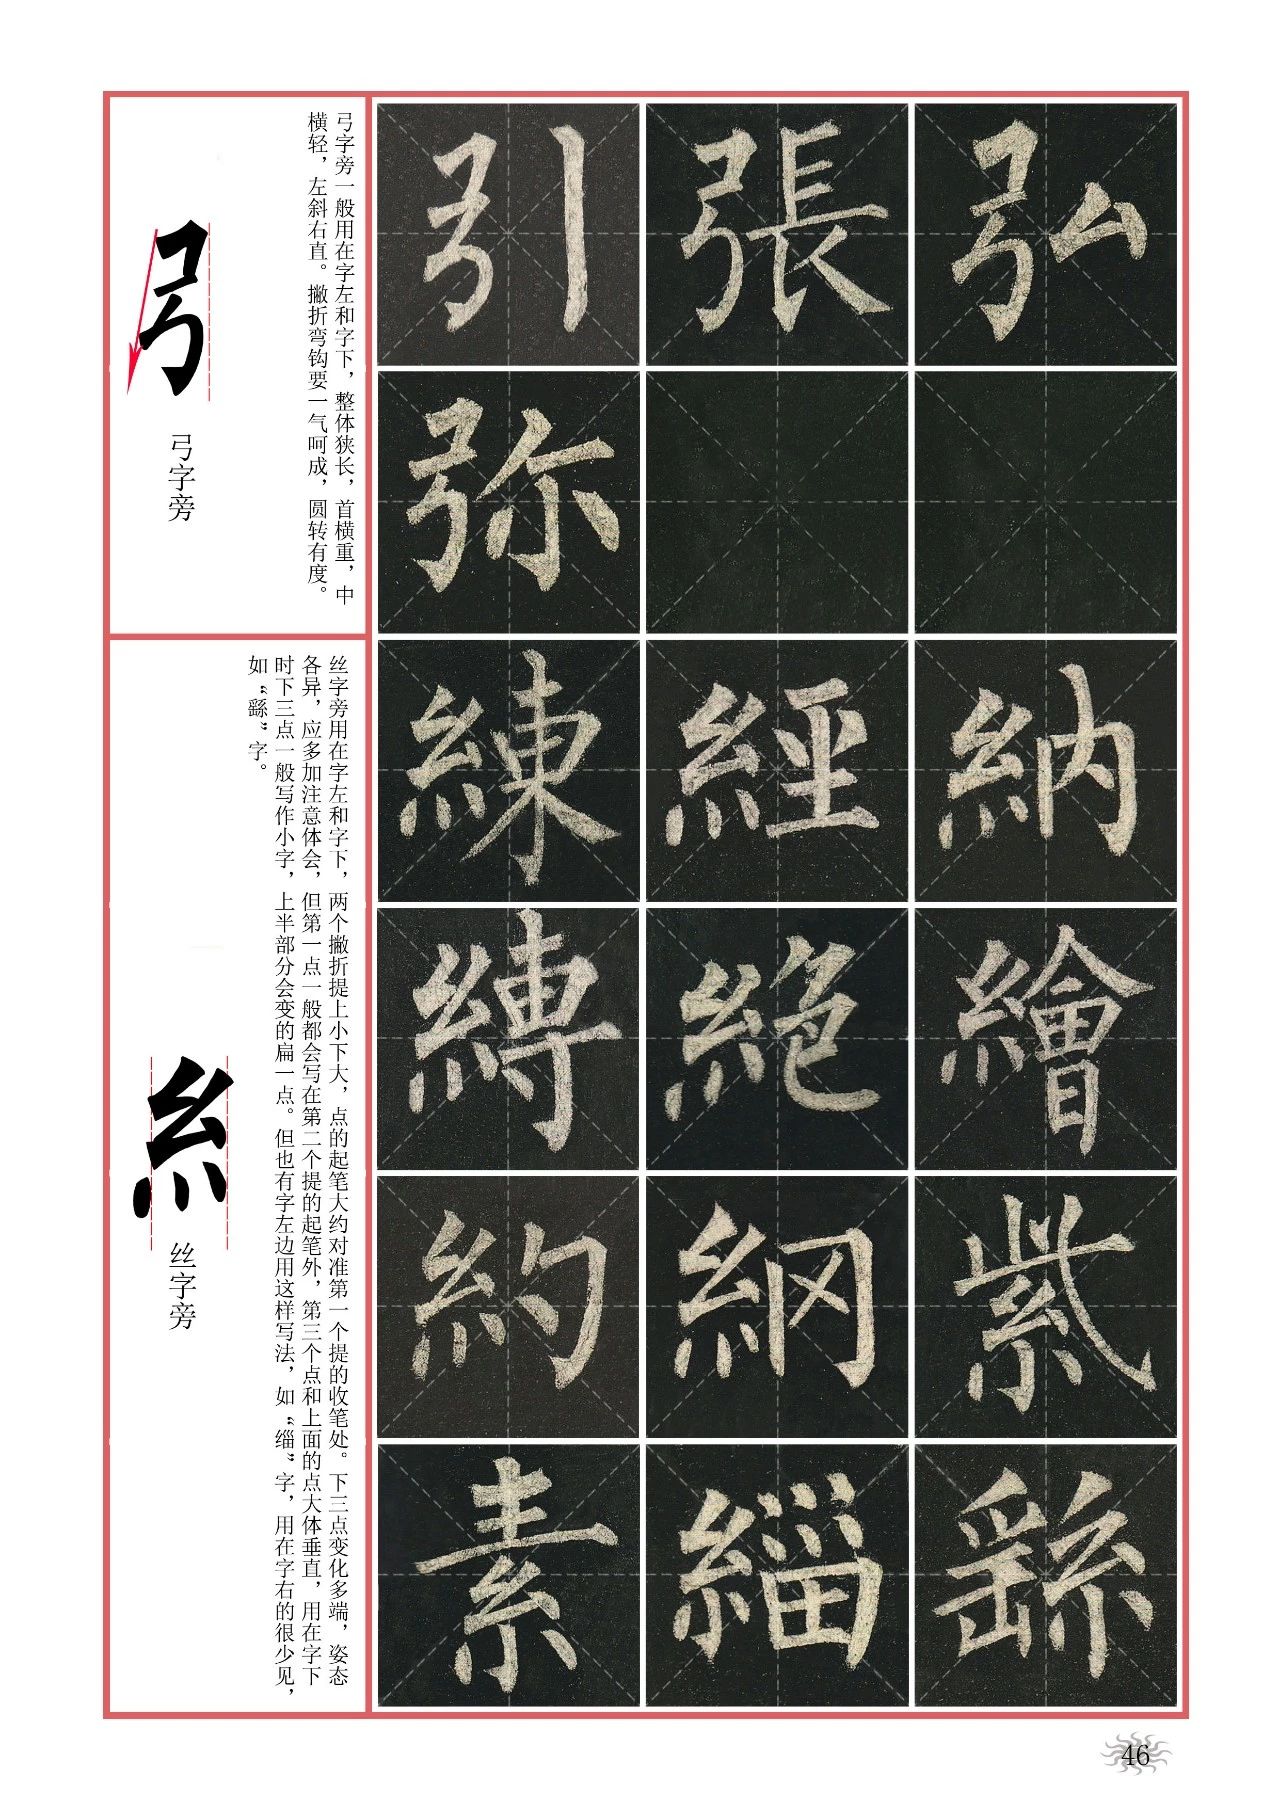 弓字旁一般用在字左和字下，整体狭长，首横重，中
横轻，左斜右直。撇折弯钩要一气呵成，圆转有度。
弓
弓字旁
引 張 弘
弥
丝字旁用在字左和字下，两个撇折提上小下大，点的起笔大约对准第一个提的收笔处。下三点变化多端，姿态
各异，应多加注意体会，但第一点一般都会写在第二个提的起笔外，第三个点和上面的点大体垂直，用在字下
时下三点一般写作小字，上半部分会变的扁一点。但也有字左边用这样写法，如“缁”字，用在字右的很少见，
如“繇”字。
糹
丝字旁
練 經 納
縛 絶 繪
約 網 紫
素 緇 繇
46